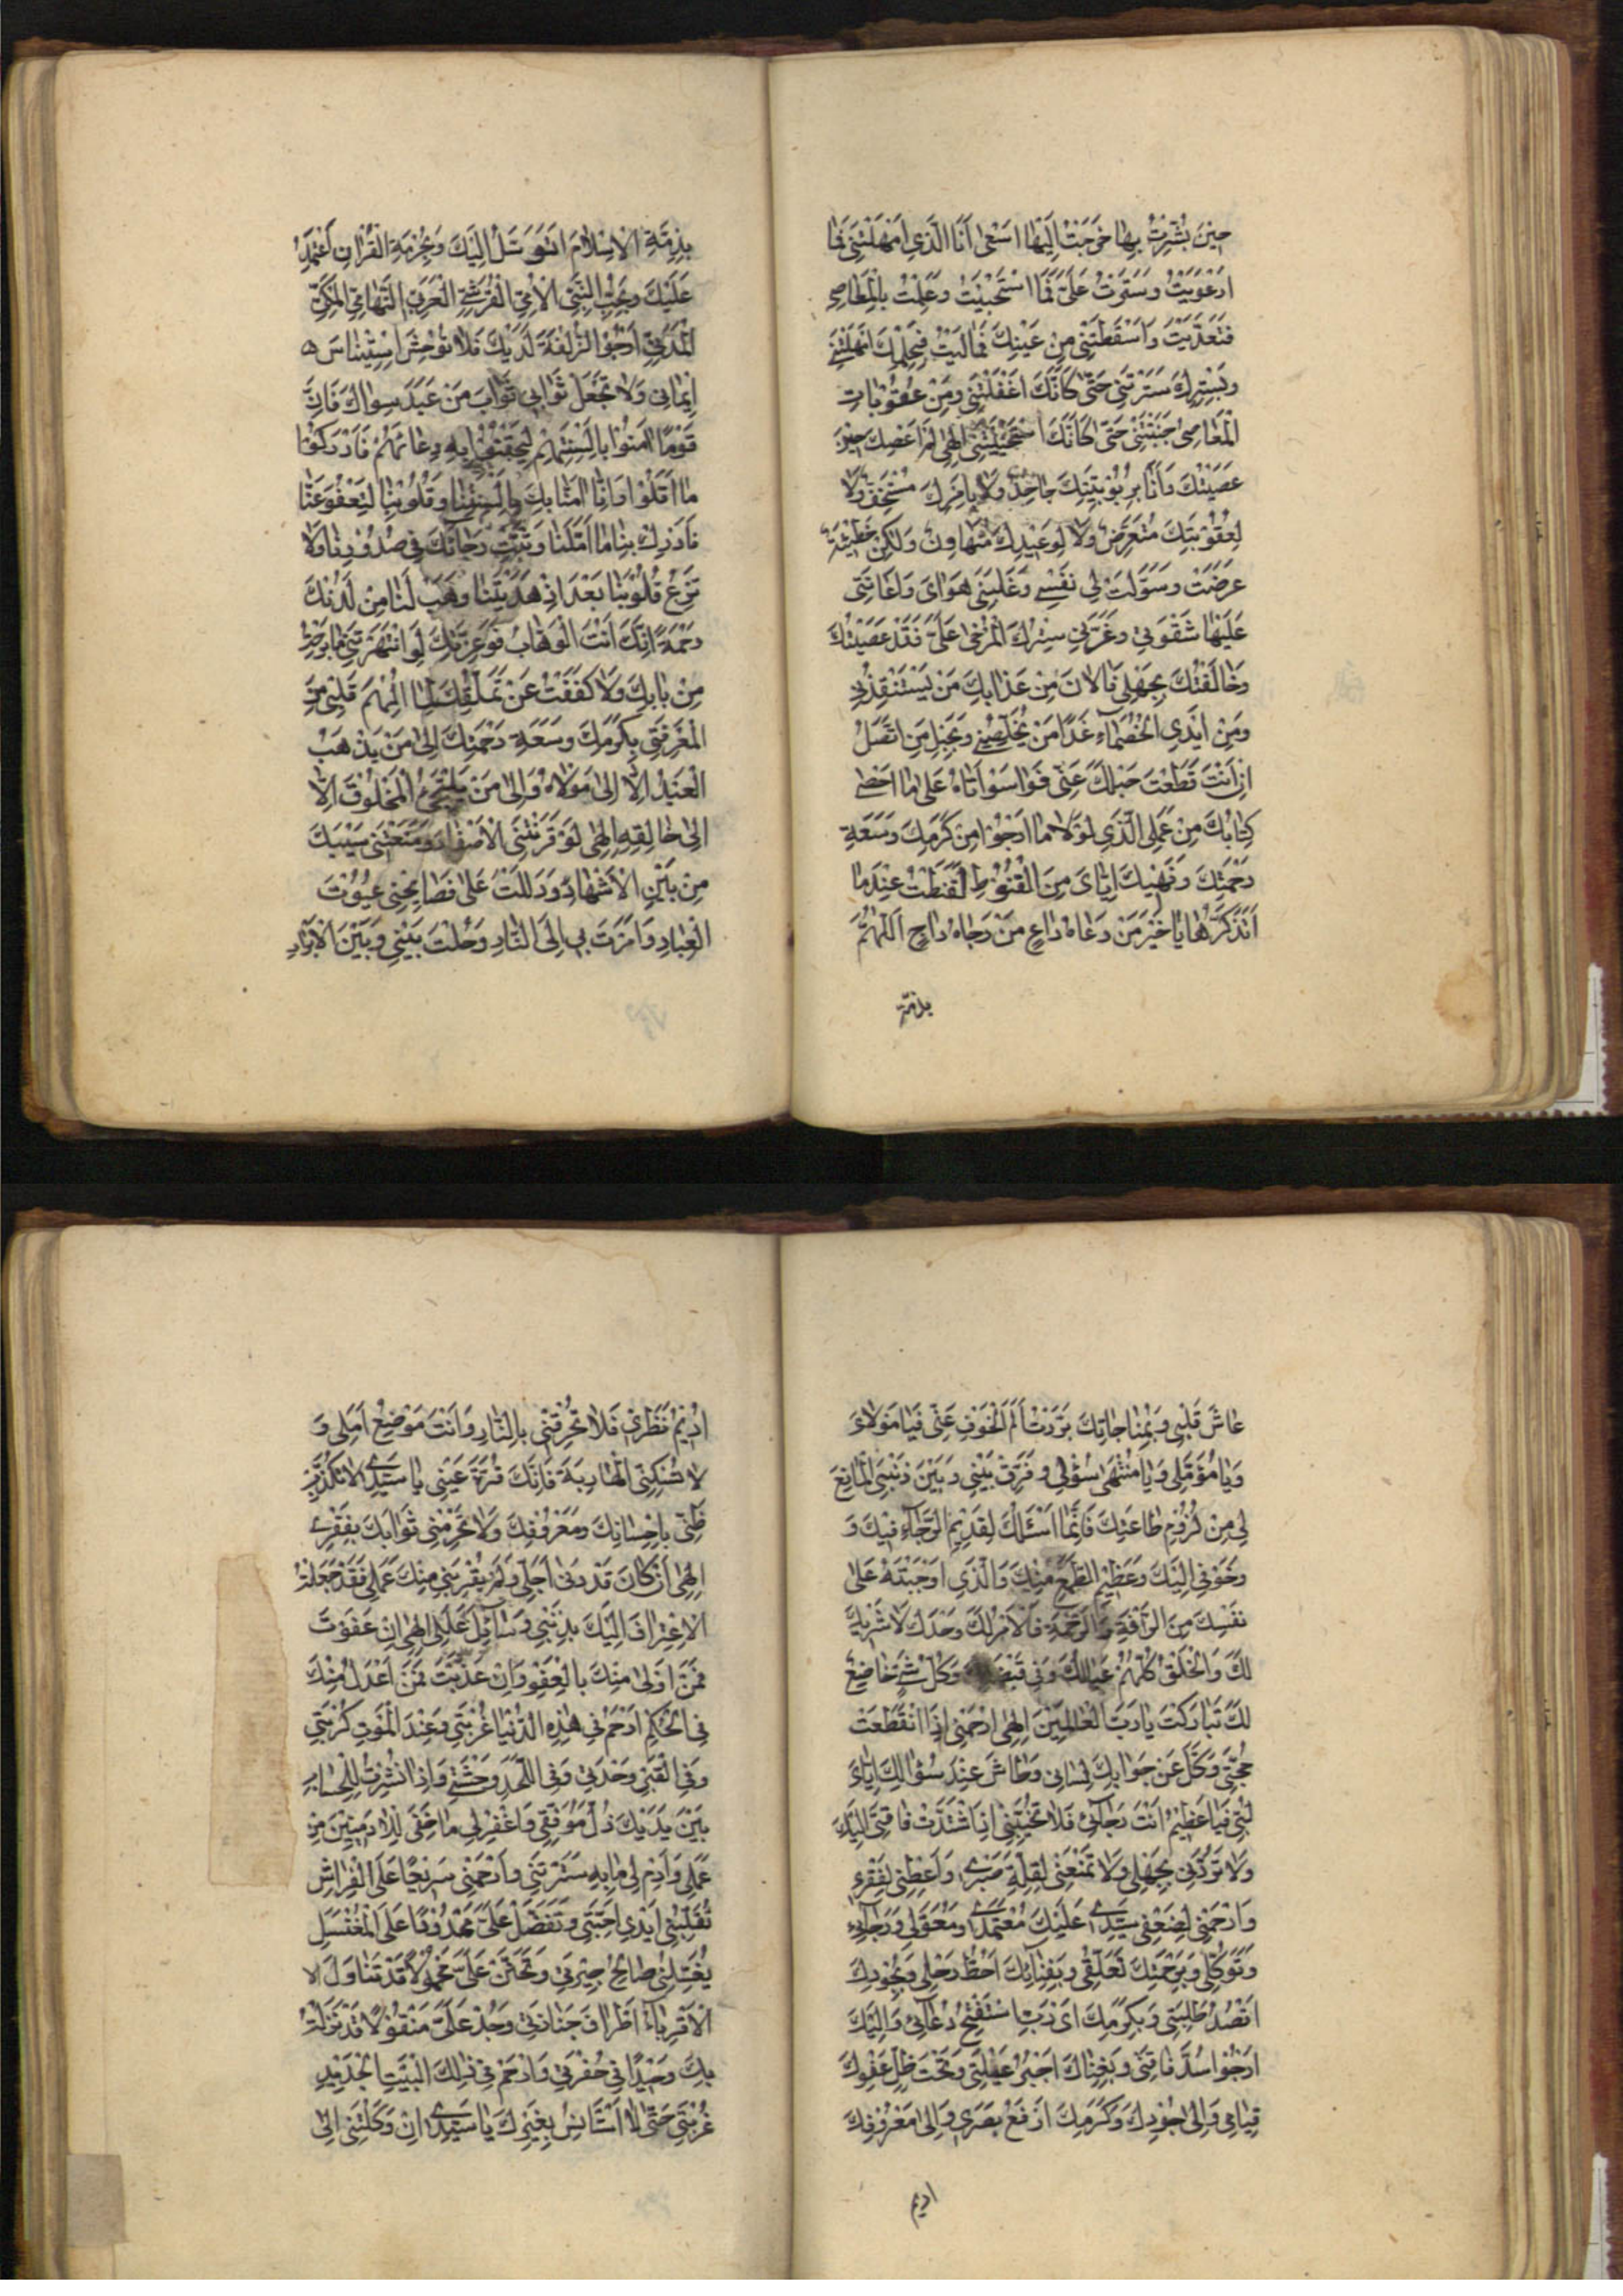 حِينَ بُشِّرْتُ بِهَا خَرَجْتُ اِلَيْهَا اَسْعٰى اَنَا الَّذِي اَمْهَلْتَنِي فَمَا
ارْعَوَيْتُ وَسَتَرْتَ عَلَيَّ فَمَا اسْتَحْيَيْتُ وَعَمِلْتُ بِالْمَعَاصِي
فَتَعَدَّيْتُ وَاَسْقَطْتَنِي مِنْ عَيْنِكَ فَمَا بَالَيْتُ فَبِحِلْمِكَ اَمْهَلْتَنِي
وَبِسِتْرِكَ سَتَرْتَنِي حَتّٰى كَاَنَّكَ اَغْفَلْتَنِي وَمِنْ عُقُوبَاتِ
الْمَعَاصِي جَنَّبْتَنِي حَتّٰى كَاَنَّكَ اسْتَحْيَيْتَنِي اِلٰهِي لَمْ اَعْصِكَ حِينَ
عَصَيْتُكَ وَاَنَا بِرُبُوبِيَّتِكَ جَاحِدٌ وَلَا بِاَمْرِكَ مُسْتَخِفٌّ وَلَا
لِعُقُوبَتِكَ مُتَعَرِّضٌ وَلَا لِوَعِيدِكَ مُتَهَاوِنٌ وَلٰكِنْ خَطِيئَةٌ
عَرَضَتْ وَسَوَّلَتْ لِي نَفْسِي وَغَلَبَنِي هَوَايَ وَاَعَانَنِي
عَلَيْهَا شِقْوَتِي وَغَرَّنِي سِتْرُكَ الْمُرْخٰى عَلَيَّ فَقَدْ عَصَيْتُكَ
وَخَالَفْتُكَ بِجَهْلِي فَالْاٰنَ مِنْ عَذَابِكَ مَنْ يَسْتَنْقِذُنِي
وَمِنْ اَيْدِي الْخُصَمَاءِ غَدًا مَنْ يُخَلِّصُنِي وَبِحَبْلِ مَنْ اَتَّصِلُ
اِنْ اَنْتَ قَطَعْتَ حَبْلَكَ عَنِّي فَوَاسَوْاَتَاهُ عَلٰى مَا اَحْصٰى
كِتَابُكَ مِنْ عَمَلِي الَّذِي لَوْلَا مَا اَرْجُو مِنْ كَرَمِكَ وَسَعَةِ
رَحْمَتِكَ وَنَهْيِكَ اِيَّايَ مِنَ الْقُنُوطِ لَقَنَطْتُ عِنْدَمَا
اَتَذَكَّرُهَا يَا خَيْرَ مَنْ دَعَاهُ دَاعٍ مَنْ رَجَاهُ رَاجٍ اَللّٰهُمَّ
بذمّة
بِذِمَّةِ الْاِسْلَامِ اَتَوَسَّلُ اِلَيْكَ وَبِحُرْمَةِ الْقُرْاٰنِ اَعْتَمِدُ
عَلَيْكَ وَبِحُبِّ النَّبِيِّ الْاُمِّيِّ الْقُرَشِيِّ الْعَرَبِيِّ التِّهَامِيِّ الْمَكِّيِّ
الْمَدَنِيِّ اَرْجُو الزُّلْفَةَ لَدَيْكَ فَلَا تُوحِشِ اسْتِيْنَاسَ
اِيمَانِي وَلَا تَجْعَلْ ثَوَابِي ثَوَابَ مَنْ عَبَدَ سِوَاكَ فَاِنَّ
قَوْمًا اٰمَنُوا بِاَلْسِنَتِهِمْ لِيَحْقِنُوا بِهِ دِمَائَهُمْ فَاَدْرَكُوا
مَا اَمَّلُوا وَاِنَّا اٰمَنَّا بِكَ بِاَلْسِنَتِنَا وَقُلُوبِنَا لِتَعْفُوَ عَنَّا
فَاَدْرِكْ بِنَا مَا اَمَّلْنَا وَثَبِّتْ رَجَائَكَ فِي صُدُورِنَا وَلَا
تُزِغْ قُلُوبَنَا بَعْدَ اِذْ هَدَيْتَنَا وَهَبْ لَنَا مِنْ لَدُنْكَ
رَحْمَةً اِنَّكَ اَنْتَ الْوَهَّابُ فَوَعِزَّتِكَ لَوِ انْتَهَرْتَنِي مَا بَرِحْتُ
مِنْ بَابِكَ وَلَا كَفَفْتُ عَنْ تَمَلُّقِكَ لِمَا اُلْهِمَ قَلْبِي مِنَ
الْمَعْرِفَةِ بِكَرَمِكَ وَسَعَةِ رَحْمَتِكَ اِلٰى مَنْ يَذْهَبُ
الْعَبْدُ اِلَّا اِلٰى مَوْلَاهُ وَاِلٰى مَنْ يَلْتَجِئُ الْمَخْلُوقُ اِلَّا
اِلٰى خَالِقِهِ اِلٰهِي لَوْ قَرَنْتَنِي الْاَصْفَادَ وَمَنَعْتَنِي سَيْبَكَ
مِنْ بَيْنِ الْاَشْهَادِ وَدَلَلْتَ عَلٰى فَضَايِحِي عُيُونَ
الْعِبَادِ وَاَمَرْتَ بِي اِلَى النَّارِ وَحُلْتَ بَيْنِي وَبَيْنَ الْاَبْرَارِ
عَاشَ قَلْبِي وَبِمُنَاجَاتِكَ بَرَّدْتُ اَلَمَ الْخَوْفِ عَنِّي فَيَا مَوْلَايَ
وَيَا مُؤَمَّلِي وَيَا مُنْتَهٰى سُؤْلِي وَفَرِّقْ بَيْنِي وَبَيْنَ ذَنْبِيَ الْمَانِعِ
لِي مِنْ لُزُومِ طَاعَتِكَ فَاِنَّمَا اَسْئَلُكَ لِقَدِيمِ الرَّجَاءِ فِيكَ وَ
وَخَوْفِي اِلَيْكَ وَعَظِيمِ الطَّمَعِ مِنْكَ وَالَّذِي اَوْجَبْتَهُ عَلٰى
نَفْسِكَ مِنَ الرَّاْفَةِ وَالرَّحْمَةِ فَالْاَمْرُ لَكَ وَحْدَكَ لَا شَرِيكَ
لَكَ وَالْخَلْقُ كُلُّهُمْ عِيَالُكَ وَفِي وَكُلُّ شَيْءٍ خَاضِعٌ
لَكَ تَبَارَكْتَ يَا رَبَّ الْعَالَمِينَ اِلٰهِي ارْحَمْنِي اِذَا انْقَطَعَتْ
حُجَّتِي وَكَلَّ عَنْ جَوَابِكَ لِسَانِي وَطَاشَ عِنْدَ سُؤَالِكَ اِيَّايَ
لُبِّي فَيَا عَظِيمُ اَنْتَ رَجَائِي فَلَا تُخَيِّبْنِي اِذَا اشْتَدَّتْ فَاقَتِي اِلَيْكَ
وَلَا تَرُدَّنِي بِجَهْلِي وَلَا تَمْنَعْنِي لِقِلَّةِ صَبْرِي وَاَعْطِنِي لِفَقْرِي
وَارْحَمْنِي لِضَعْفِي سَيِّدِي عَلَيْكَ مُعْتَمَدِي وَمُعَوَّلِي وَرَجَائِي
وَتَوَكُّلِي وَبِرَحْمَتِكَ تَعَلُّقِي وَبِفِنَائِكَ اَحُطُّ رَحْلِي وَبِجُودِكَ
اَقْصُدُ طَلِبَتِي وَبِكَرَمِكَ اَيْ رَبِّ اسْتَفْتِحُ دُعَائِي وَاِلَيْكَ
اَرْجُو سَدَّ فَاقَتِي وَبِغِنَاكَ اَجْبُرُ عَيْلَتِي وَتَحْتَ ظِلِّ عَفْوِكَ
قِيَامِي وَاِلٰى جُودِكَ وَكَرَمِكَ اَرْفَعُ بَصَرِي وَاِلٰى مَعْرُوفِكَ
اديم
اُدِيمُ نَظَرِي فَلَا تُحْرِقْنِي بِالنَّارِ وَاَنْتَ مَوْضِعُ اَمَلِي وَ
لَا تُسْكِنِّي الْهَاوِيَةَ فَاِنَّكَ قُرَّةُ عَيْنِي يَا سَيِّدِي لَا تُكَذِّبْ
ظَنِّي بِاِحْسَانِكَ وَمَعْرُوفِكَ وَلَا تَحْرِمْنِي ثَوَابَكَ بِفَقْرِي
اِلٰهِي اِنْ كَانَ قَدْ دَنٰى اَجَلِي وَلَمْ يُقَرِّبْنِي مِنْكَ عَمَلِي فَقَدْ جَعَلْتُ
الْاِعْتِرَافَ اِلَيْكَ بِذَنْبِي وَسَائِلَ عَلَلِي اِلٰهِي اِنْ عَفَوْتَ
فَمَنْ اَوْلٰى مِنْكَ بِالْعَفْوِ وَاِنْ عَذَّبْتَ فَمَنْ اَعْدَلُ مِنْكَ
فِي الْحُكْمِ ارْحَمْ فِي هٰذِهِ الدُّنْيَا غُرْبَتِي وَعِنْدَ الْمَوْتِ كُرْبَتِي
وَفِي الْقَبْرِ وَحْدَتِي وَفِي اللَّحْدِ وَحْشَتِي وَاِذَا نُشِرْتُ لِلْحِسَابِ
بَيْنَ يَدَيْكَ ذُلَّ مَوْقِفِي وَاغْفِرْ لِي مَا خَفِيَ لِلْاٰدَمِيِّينَ مِنْ
عَمَلِي وَاَدِمْ لِي مَا بِهِ سَتَرْتَنِي وَارْحَمْنِي صَرِيعًا عَلَى الْفِرَاشِ
تُقَلِّبُنِي اَيْدِي اَحِبَّتِي وَتَفَضَّلْ عَلَيَّ مَمْدُودًا عَلَى الْمُغْتَسَلِ
يُغَسِّلُنِي صَالِحُ جِيرَتِي وَتَحَنَّنْ عَلَيَّ مَحْمُولًا قَدْ تَنَاوَلَ الا
الْاَقْرِبَاءُ اَطْرَافَ جَنَازَتِي وَجُدْ عَلَيَّ مَنْقُولًا قَدْ نَزَلْتُ
بِكَ وَحِيدًا فِي حُفْرَتِي وَارْحَمْ فِي ذٰلِكَ الْبَيْتِ الْجَدِيدِ
غُرْبَتِي حَتّٰى لَا اَسْتَاْنِسَ بِغَيْرِكَ يَا سَيِّدِي اِنْ وَكَلْتَنِي اِلٰى